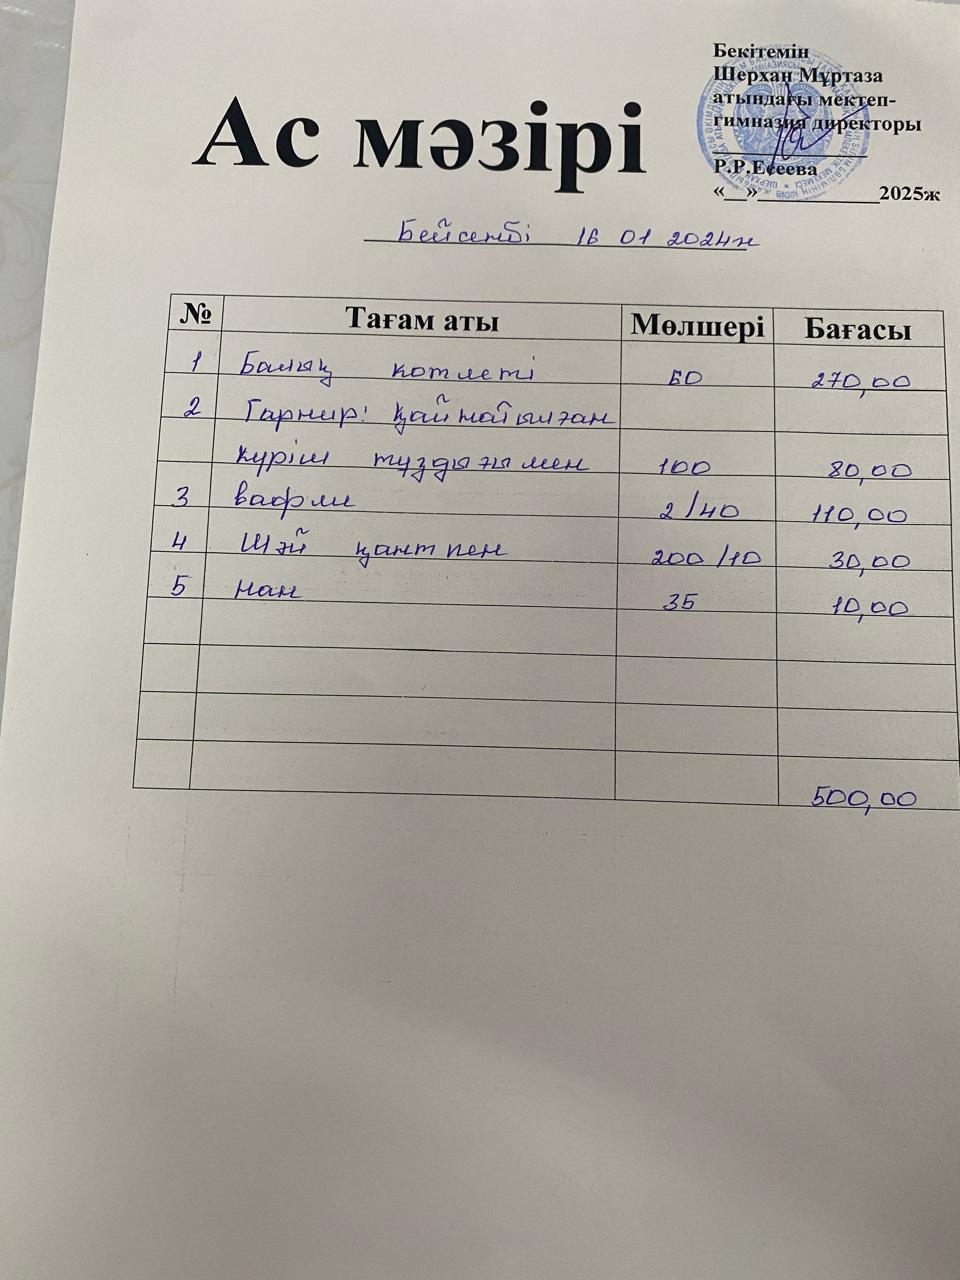 Бекітемін
Шерхан Мұртаза
атындағы мектеп-
гимназия директоры
Р.Р.Есеева
«__»___________2025ж
Ас мәзірі
Бейсенбі 16 01 2024ж
№ Тағам аты Мөлшері Бағасы
1 Балық котлеті 60 270,00
2 Гарнир: қайнатылған
күріш тұздығымен 100 80,00
3 вафли 2/40 110,00
4 Шәй қантпен 200/10 30,00
5 нан 35 10,00
500,00